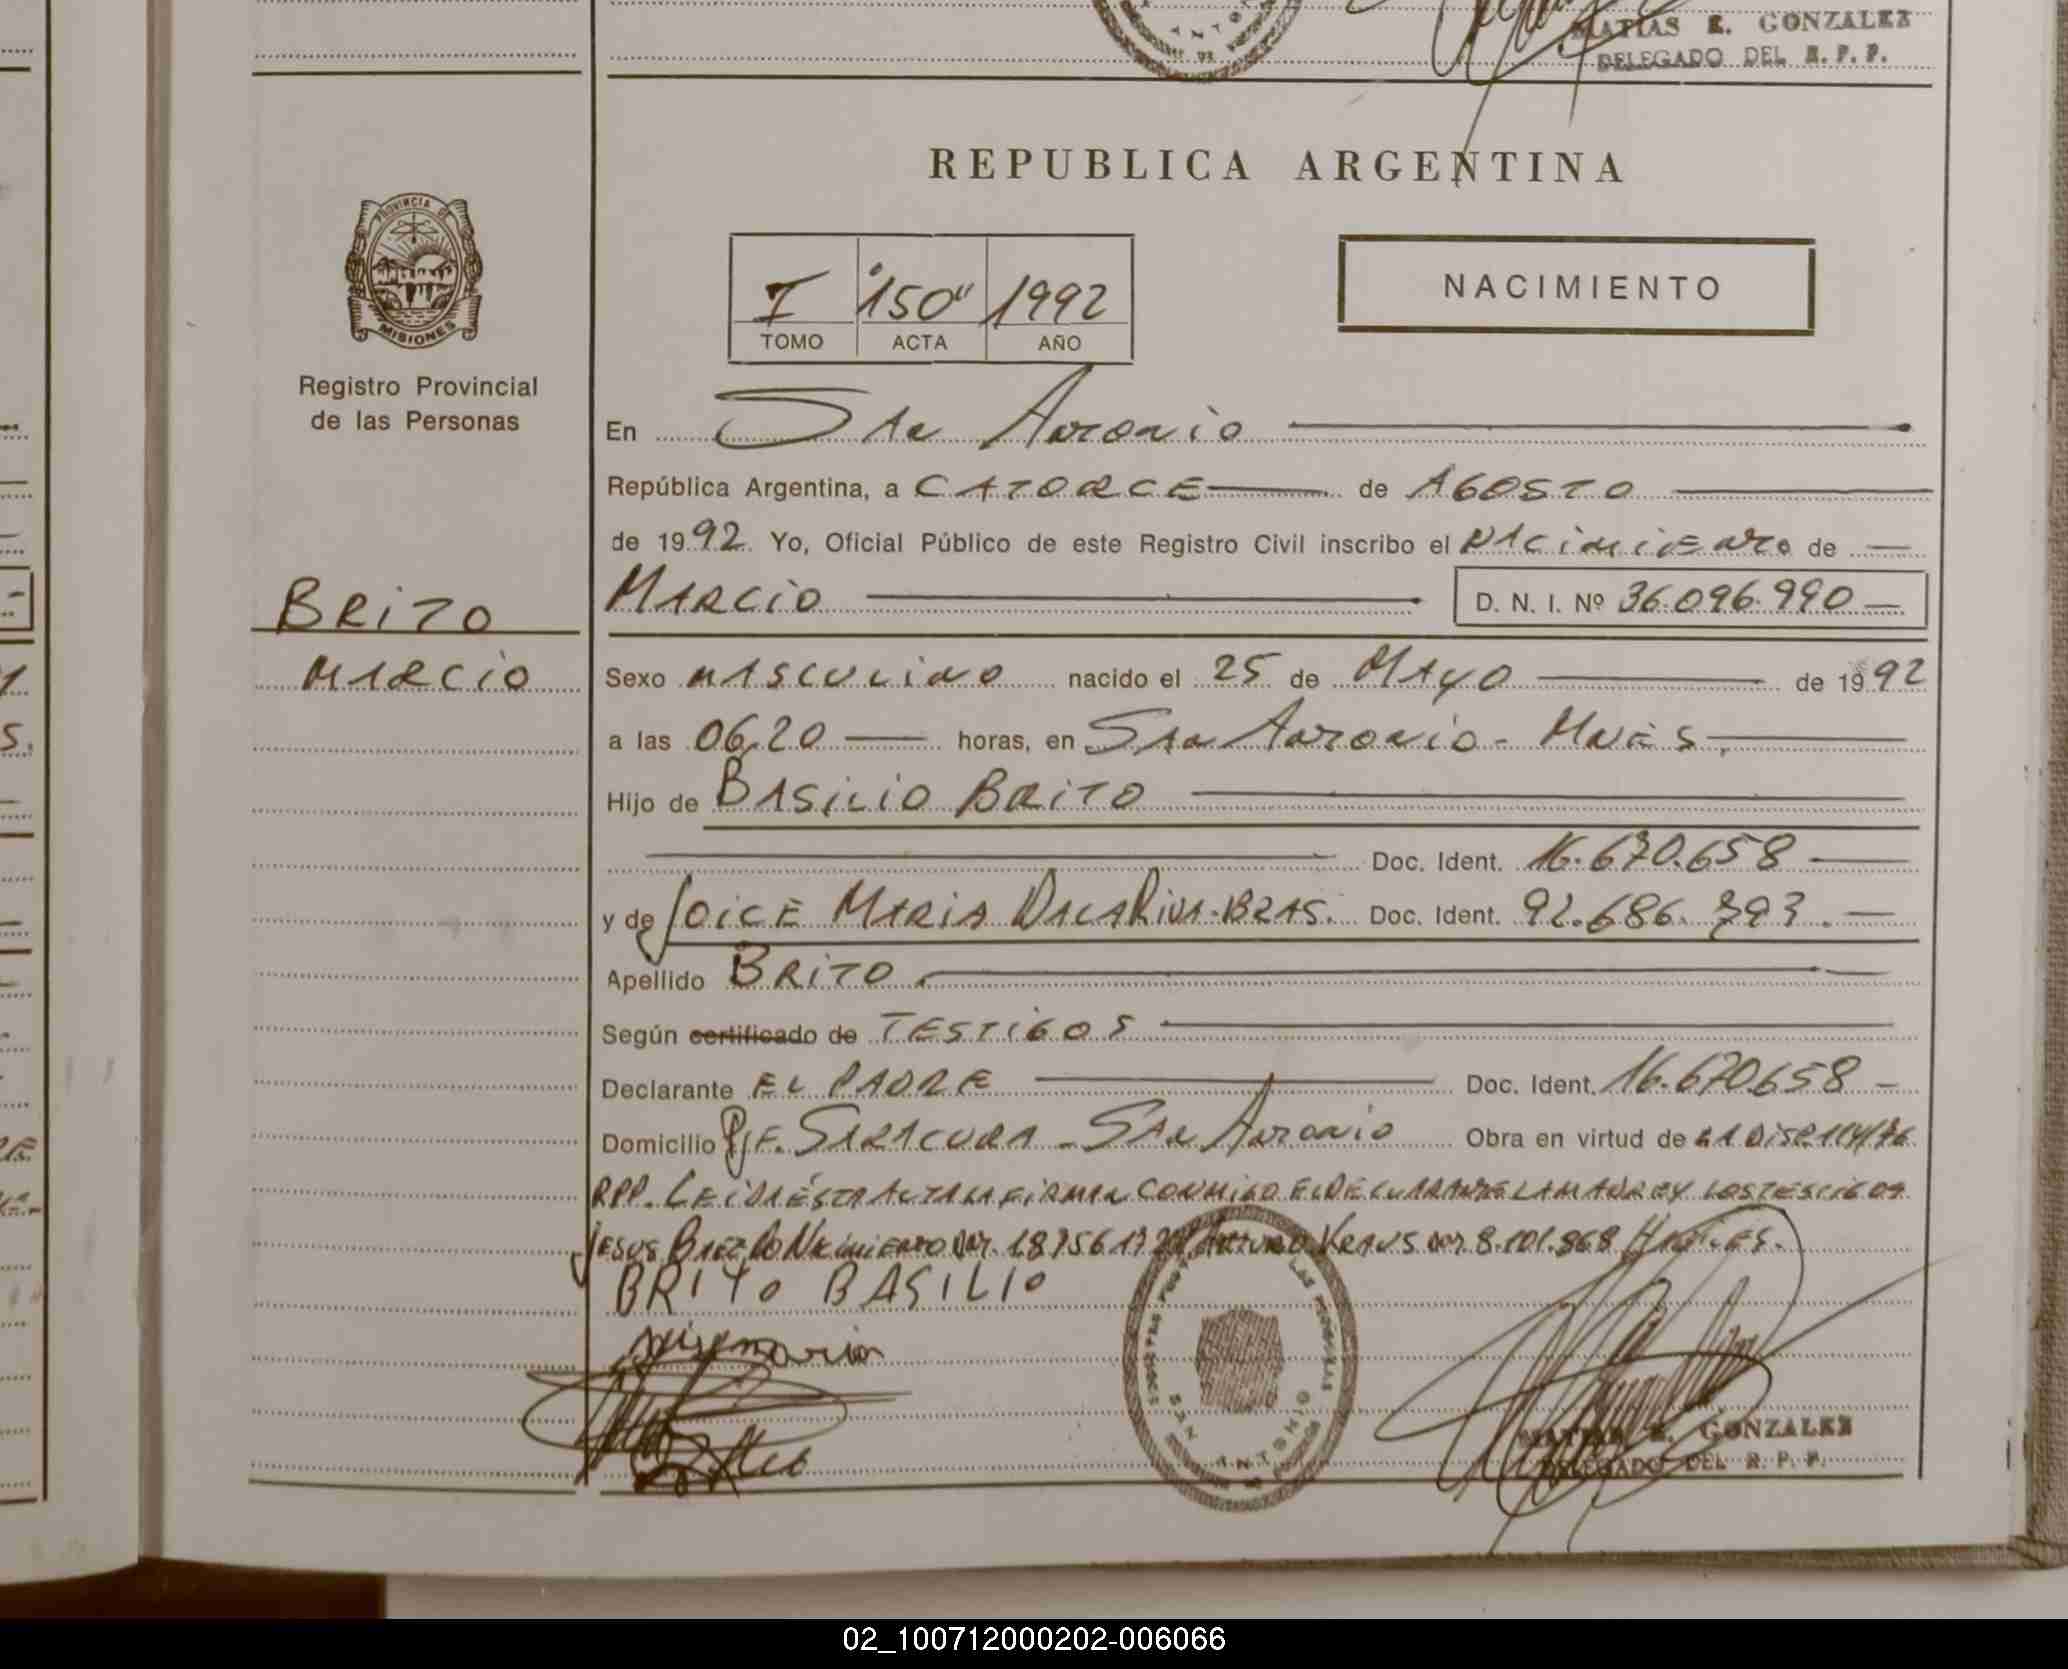 MATIAS E. GONZALEZ
DELEGADO DEL R. P. P.
REPUBLICA ARGENTINA
PROVINCIA DE
MISIONES
Registro Provincial
de las Personas
I 150" 1992
TOMO ACTA AÑO
NACIMIENTO
En San Antonio
República Argentina, a CATORCE de AGOSTO
de 1992. Yo, Oficial Público de este Registro Civil inscribo el NAcimiENTo de
MARCIO D. N. I. Nº 36.096.990
BRITO
MARCIO
Sexo MASCULINO nacido el 25 de MAyO de 1992
a las 06,20 horas, en San Antonio - Mnes.
Hijo de BASILIO BRITO
Doc. Ident. 16.670.658
y de JOICE MARIA DALARIVA-BRAS. Doc. Ident. 92.686.793.
Apellido BRITO
Según certificado de TESTIGOS
Declarante EL PADRE Doc. Ident. 16.670.658
Domicilio Pje. SARACURA - San Antonio Obra en virtud de LA DISP. 114/76
RPP. LEIDA ÉSTA ACTA LA FIRMAN CONMIGO EL DECLARANTE LA MADRE Y LOS TESTIGOS
JESUS BAEZ DO NACIMIENTO DNI. ARTURO KRAUS DNI. 8.101.868
BRITO BASILIO
SAN ANTONIO
MATIAS E. GONZALEZ
DELEGADO DEL R. P. P.
02_100712000202-006066